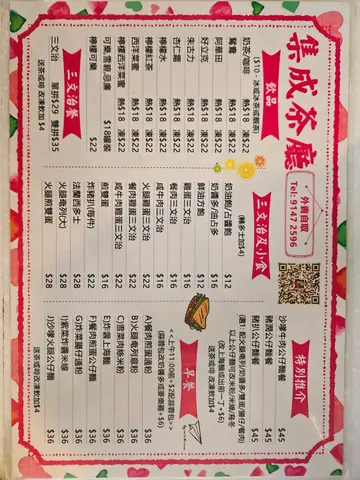 集成茶廳
外賣自取
Tel: 9147 2596
飲品
奶茶/咖啡 熱$18 凍$22
鴛鴦 熱$18 凍$22
阿華田 熱$18 凍$22
好立克 熱$18 凍$22
朱古力 熱$18 凍$22
杏仁霜 熱$18 凍$22
檸檬水 熱$18 凍$22
檸檬紅茶 熱$18 凍$22
西洋菜蜜 熱$18 凍$22
檸檬西洋菜蜜 熱$18 凍$22
可樂,雪碧,忌廉 $18罐裝
檸檬可樂 $22
三文治餐
三文治 單拼$29 雙拼$35
送茶或啡 改凍飲加$4
三文治及小食
(轉多士加$4)
奶油飽/占醬飽 $12
鮮油方飽 $12
奶醬多/油占多 $16
雞蛋三文治 $16
餐肉三文治 $16
咸牛肉三文治 $16
火腿雞蛋三文治 $22
餐肉雞蛋三文治 $22
咸牛肉雞蛋三文治 $22
煎雙蛋 $16
炸豬扒(每件) $22
法蘭西多士 $28
火腿奄列(大) $28
火腿煎雙蛋 $28
特別推介
沙嗲牛肉公仔麵餐 $45
豬潤公仔麵餐 $45
豬扒公仔麵餐 $45
以上公仔麵可改米粉/米線/烏冬
(選1: 較火腿奄列/奶醬多/雙蛋/腸仔/餐肉)
(改上海麵或出前一丁+$6)
送茶或啡 改凍飲加$4
早餐
<<上午11:00前+$2配蒜蓉包>>
(蒜蓉包改奶醬多或麥樂雞+$6)
A)餐肉煎蛋通粉 $36
B)火腿奄列意粉 $36
C)雪菜肉絲米粉 $36
E)炸醬上海麵 $36
F)餐肉煎蛋公仔麵 $36
G)炸菜腸仔通粉 $36
I)紫菜炸醬米線 $36
J)沙嗲火腿公仔麵 $36
送茶或啡 改凍飲加$4